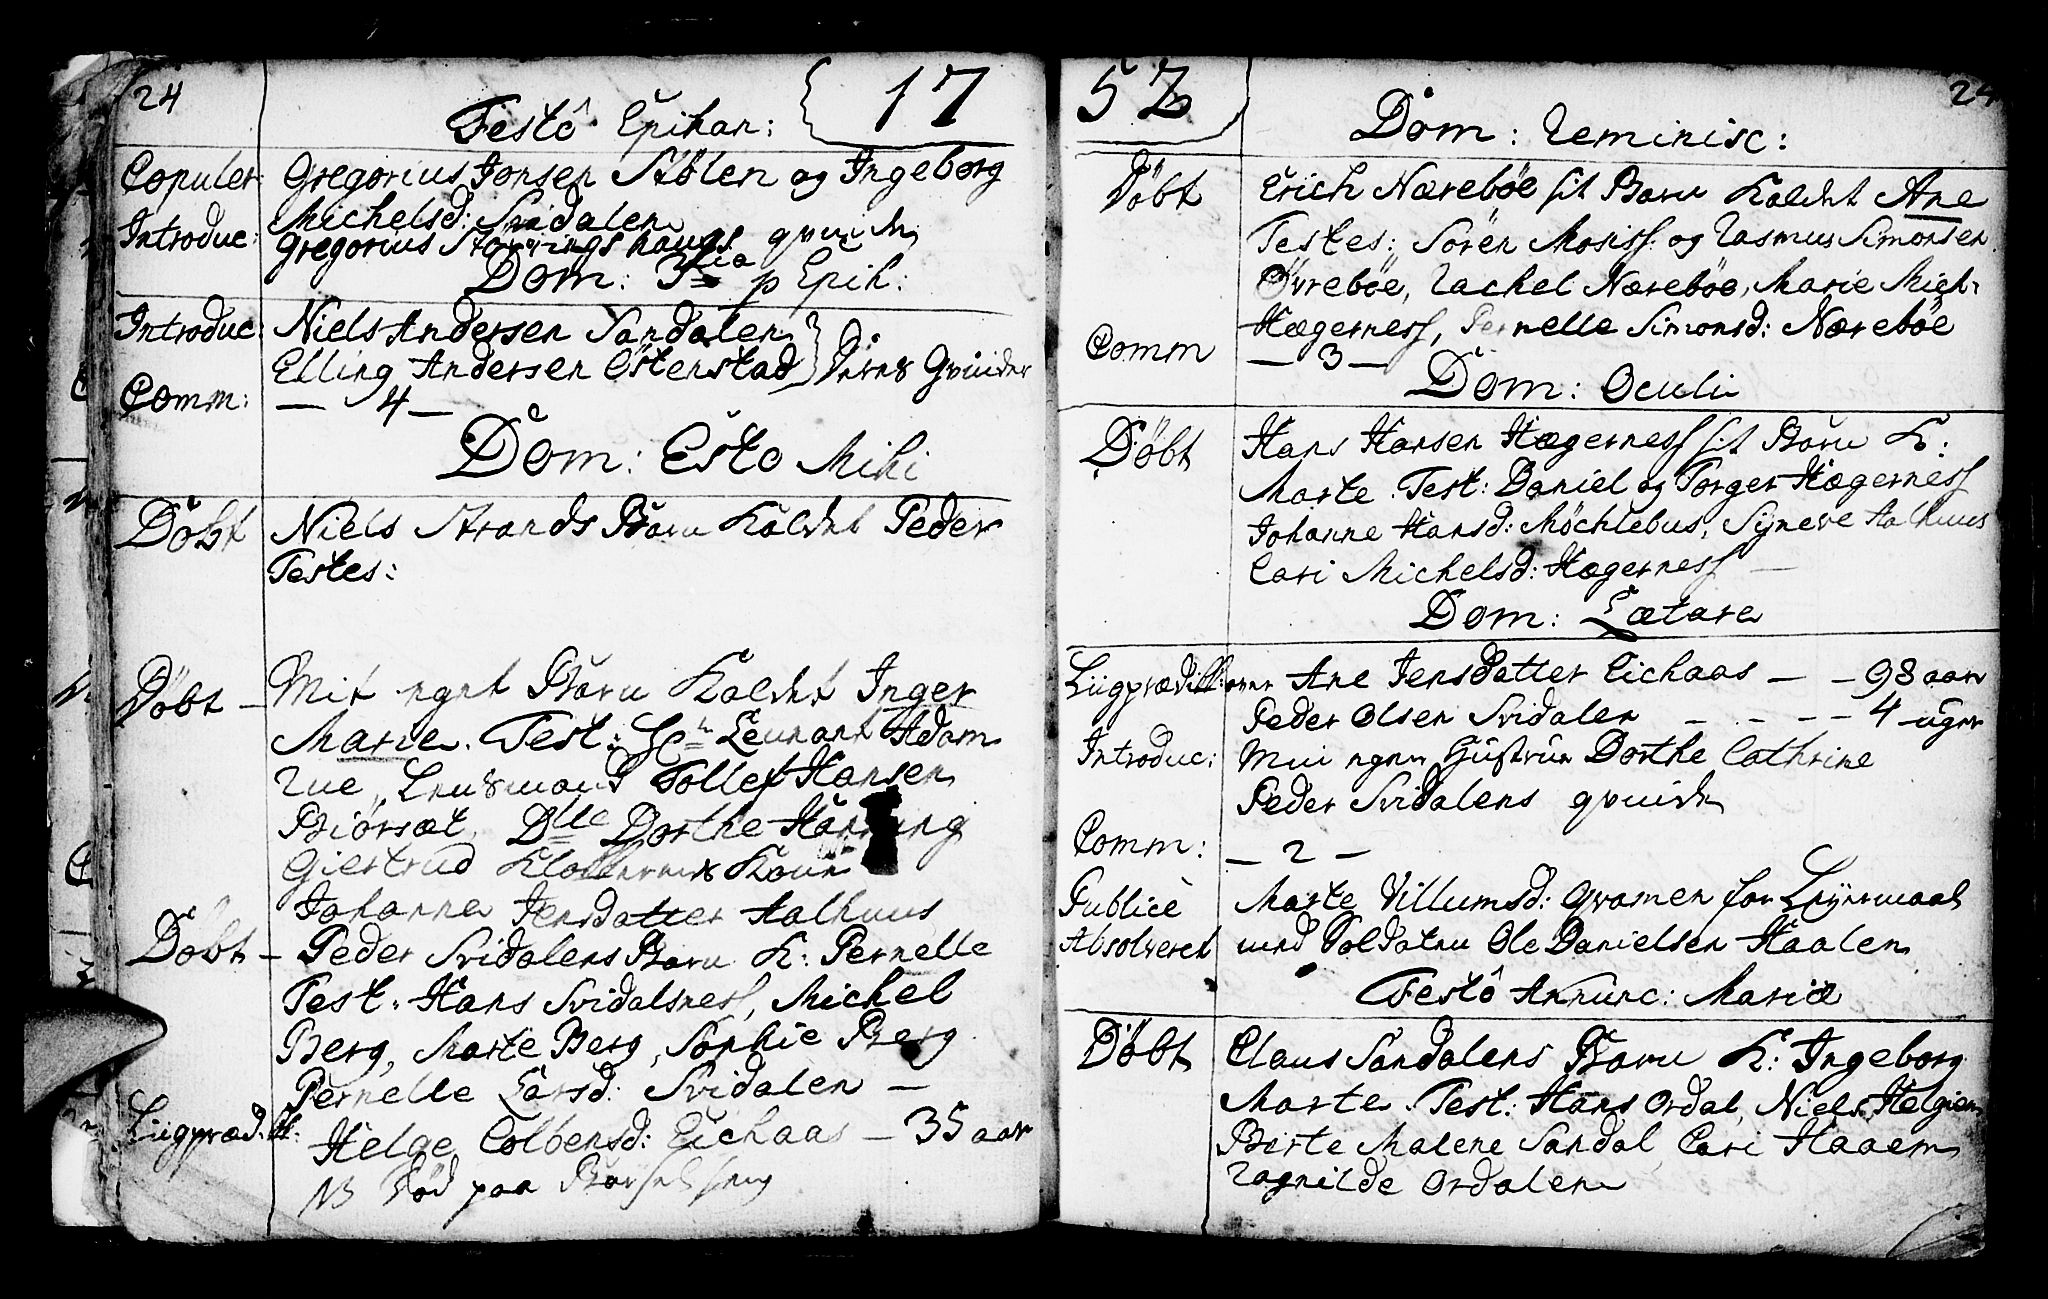 24
17
Festo Epihan:
Copuler: Gregorius Jonsen Stölen og Ingeborg
Michelsd: Svidalen
Introduc: Gregorius hougs qvinde
Dom: 3tia p Epih:
Introduc: Niels Andersen Sandalen
Elling Andersen Östenstad } Dires Qvinder
Comm: — 4 —
Dom: Esto Mihi
Döbt Niels Strands Barn Kaldet Peder
Testes:
Döbt — Mit eget Barn Kaldet Inger
Marie. Test: Hr Leutnant Adam
Rue, Lensmand Tollef Hansen
Biörsæt, Dlle Dorthe Hanning
Giertrud Klokkerens Kone
Johanne Jensdatter Aalhuus
Döbt — Peder Svidalens Barn K: Pernelle
Test. Hans Svidalsness, Michel
Berg, Marte Berg, Sophie Berg
Pernelle Larsd: Svidalen —
Liigpræd: Helge Colbensd: Eichaas — 35 aar
NB död paa Barselseng
52
24
Dom: Reminisc:
Döbt Erich Næreböe sit Barn Kaldet Ane
Testes: Sören Mosiss: og Rasmus Simonsen
Övreböe, Rachel Næreböe, Marie Mich:
Hægerness, Pernelle Simonsd: Næreböe
Comm — 3 —
Dom: Oculi
Döbt Hans Hansen Hægerness sit Barn K:
Marte. Test: Daniel og Torger Hægerness
Johanne Hansd: Möchlebus, Syneve Aalhuus
Cari Michelsd: Hægerness —
Dom: Lætare
Liigprædik: over Ane Jensdatter Eichaas — — 98 aar
Peder Olsen Svidalen — — — — 4 uger
Introduc: Min egen Hustrue Dorthe Cathrine
Peder Svidalens qvinde
Comm: — 2 —
Publicè Marte Villumsd: Qvamen for Leyermaal
Absolveret med Soldaten Ole Danielsen Haalen
Festo Annunc: Mariæ
Döbt Claus Sandalens Barn K: Ingeborg
Marte. Test: Hans Ordal, Niels Helgien
Birte Malene Sandal Cari Haaem
Ragnilde Ordalen